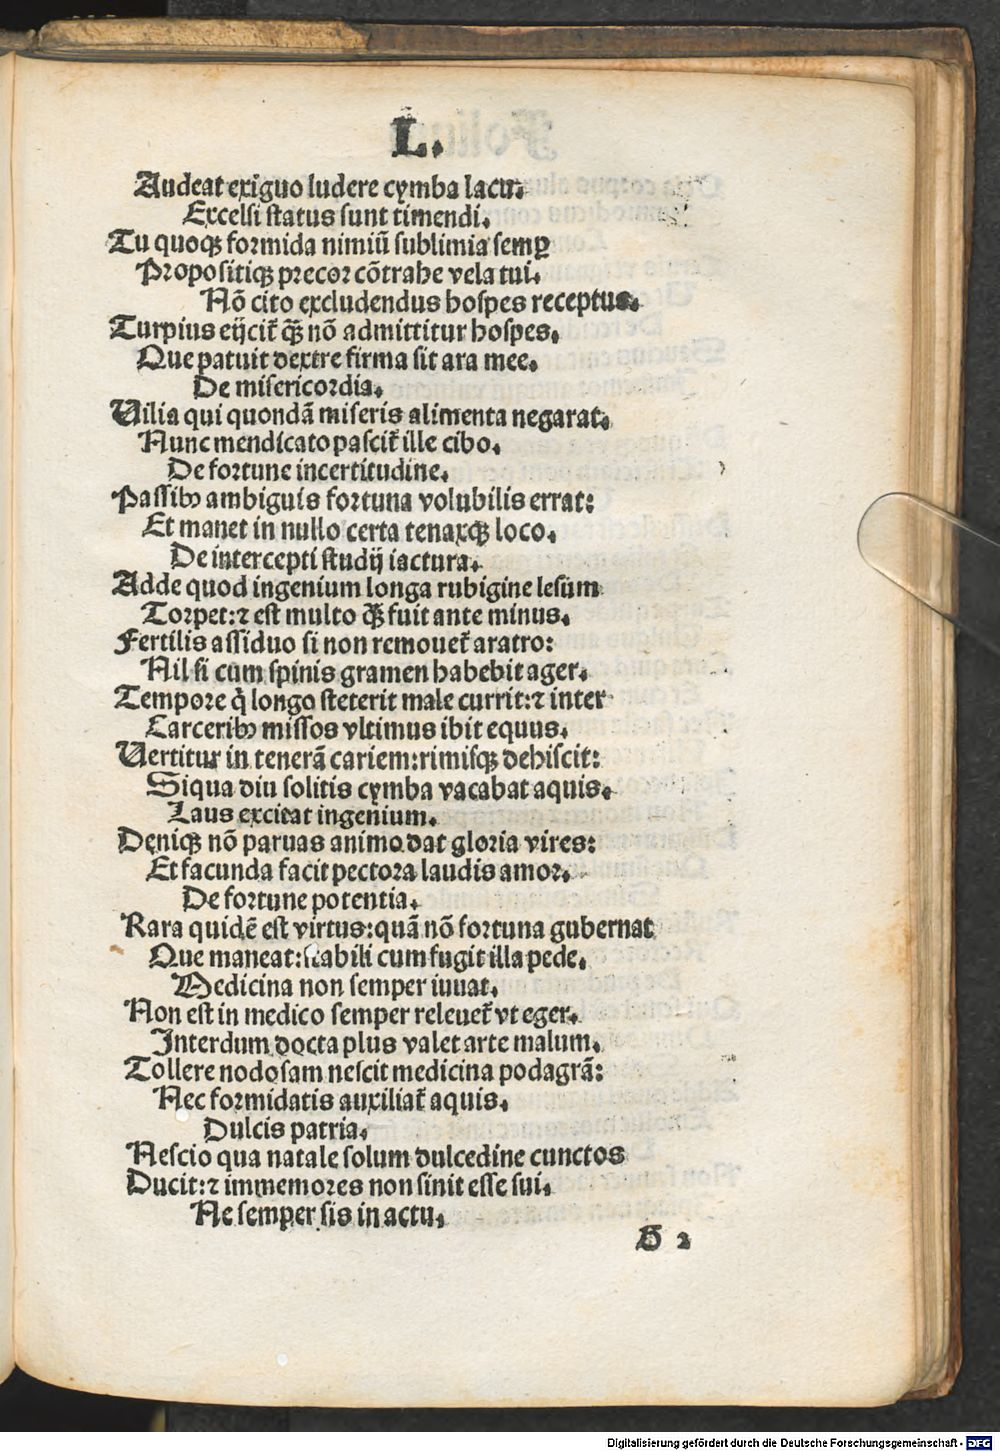 L.
Audeat exiguo ludere cymba lacu.
Excelsi status sunt timendi.
Tu quoqꝫ formida nimiū sublimia semꝑ
Propositiqꝫ precor cōtrahe vela tui.
Nō cito excludendus hospes receptus.
Turpius eijcit̃ q̃ꝫ nō admittitur hospes.
Que patuit dextre firma sit ara mee.
De misericordia.
Uilia qui quondā miseris alimenta negarat.
Nunc mendicato pascit̃ ille cibo.
De fortune incertitudine.
Passibꝰ ambiguis fortuna volubilis errat:
Et manet in nullo certa tenaxqꝫ loco.
De intercepti studij iactura.
Adde quod ingenium longa rubigine lesum
Torpet:⁊ est multo q̃ꝫ fuit ante minus.
Fertilis assiduo si non remouet̃ aratro:
Nil si cum spinis gramen habebit ager.
Tempore q̇ longo steterit male currit:⁊ inter
Carceribꝰ missos vltimus ibit equus.
Uertitur in tenerā cariem:rimisqꝫ dehiscit:
Siqua diu solitis cymba vacabat aquis.
Laus excitat ingenium.
Deniqꝫ nō paruas animo dat gloria vires:
Et facunda facit pectora laudis amor.
De fortune potentia.
Rara quidē est virtus:quā nō fortuna gubernat
Que maneat:stabili cum fugit illa pede.
Medicina non semper iuuat.
Non est in medico semper releuet̃ vt eger.
Interdum docta plus valet arte malum.
Tollere nodosam nescit medicina podagrā:
Nec formidatis auxiliat̃ aquis.
Dulcis patria.
Nescio qua natale solum dulcedine cunctos
Ducit:⁊ immemores non sinit esse sui.
Ne semper sis in actu.
H 2
Digitalisierung gefördert durch die Deutsche Forschungsgemeinschaft - DFG